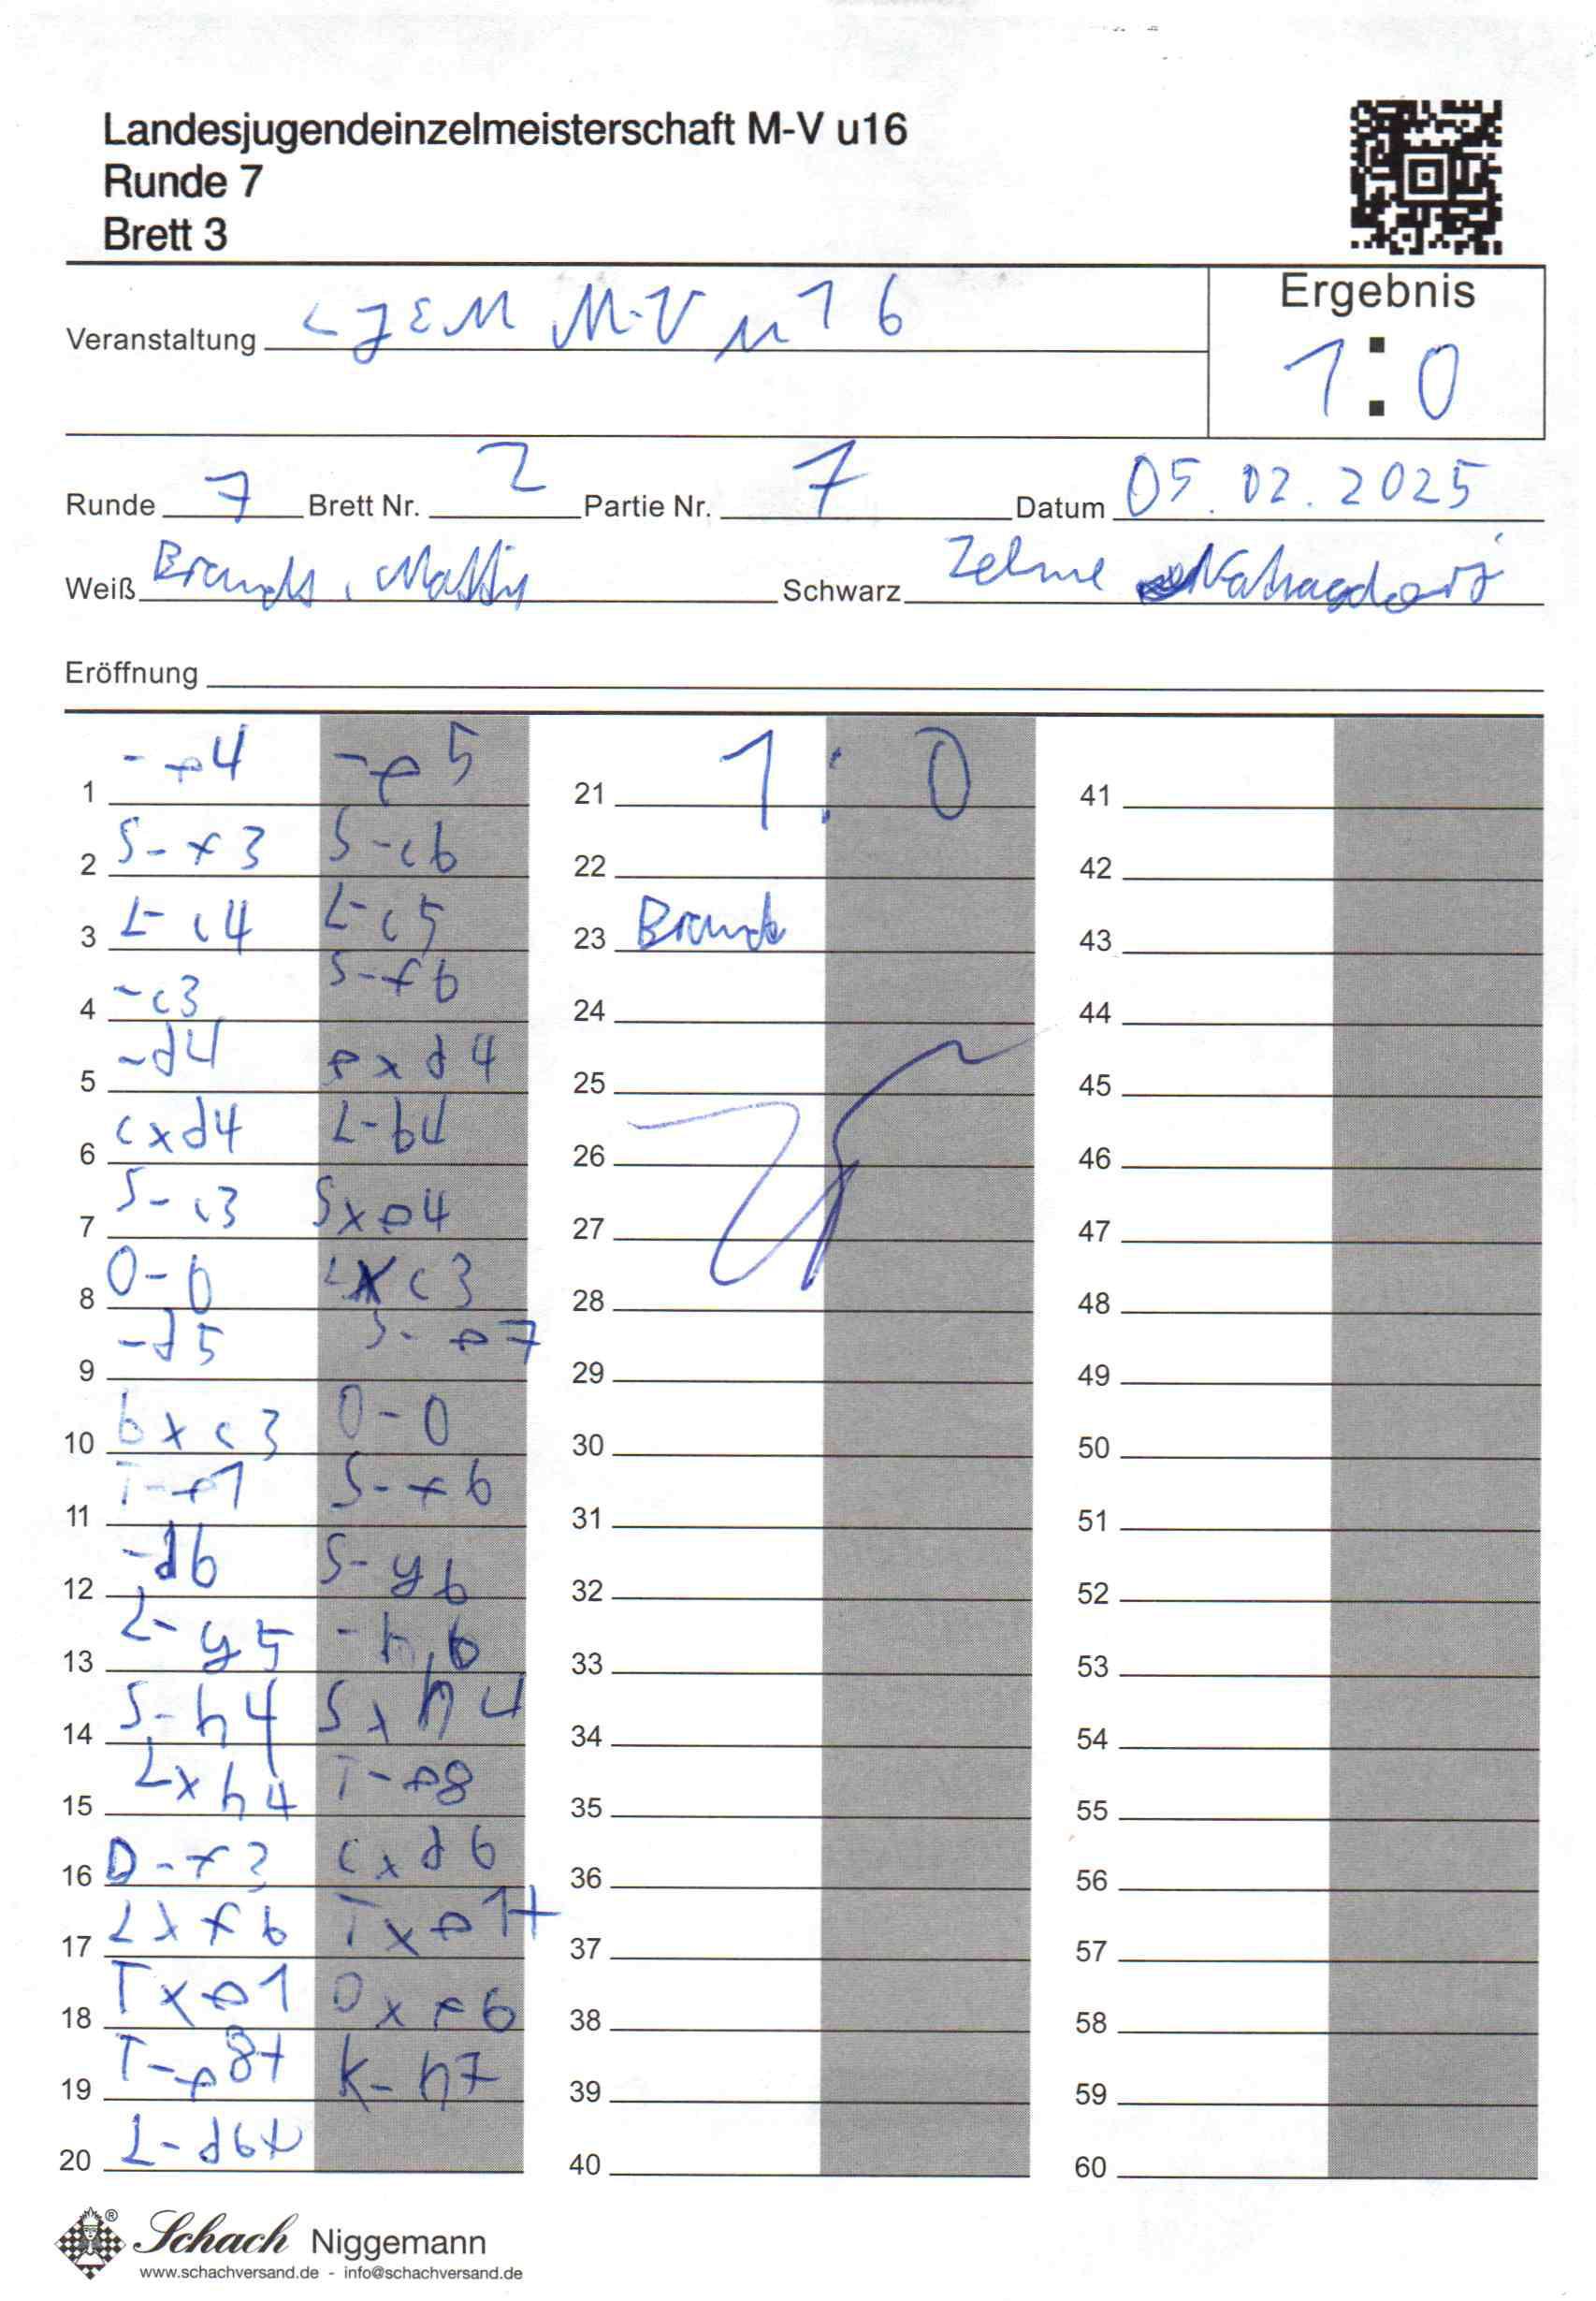 Landesjugendeinzelmeisterschaft M-V u16
Runde 7
Brett 3
Ergebnis
Veranstaltung LJEM M-V u16
1:0
Runde 7 Brett Nr. 2 Partie Nr. 7 Datum 05.02.2025
Weiß Brandt, Mattis Schwarz Zelme
Eröffnung
1 -e4 -e5 21 1:0 41
2 S-f3 S-c6 22 42
3 L-c4 L-c5 23 Brandt 43
4 -c3 S-f6 24 44
5 -d4 exd4 25 45
6 cxd4 L-b4 26 46
7 S-c3 Sxe4 27 47
8 0-0 Lxc3 28 48
9 -d5 S-e7 29 49
10 bxc3 0-0 30 50
11 T-e1 S-f6 31 51
12 -d6 S-g6 32 52
13 L-g5 -h6 33 53
14 S-h4 Sxh4 34 54
15 Lxh4 T-e8 35 55
16 D-f3 cxd6 36 56
17 Lxf6 Txe1+ 37 57
18 Txe1 Dxf6 38 58
19 T-e8+ K-h7 39 59
20 L-d6+ 40 60
Schach Niggemann
www.schachversand.de - info@schachversand.de